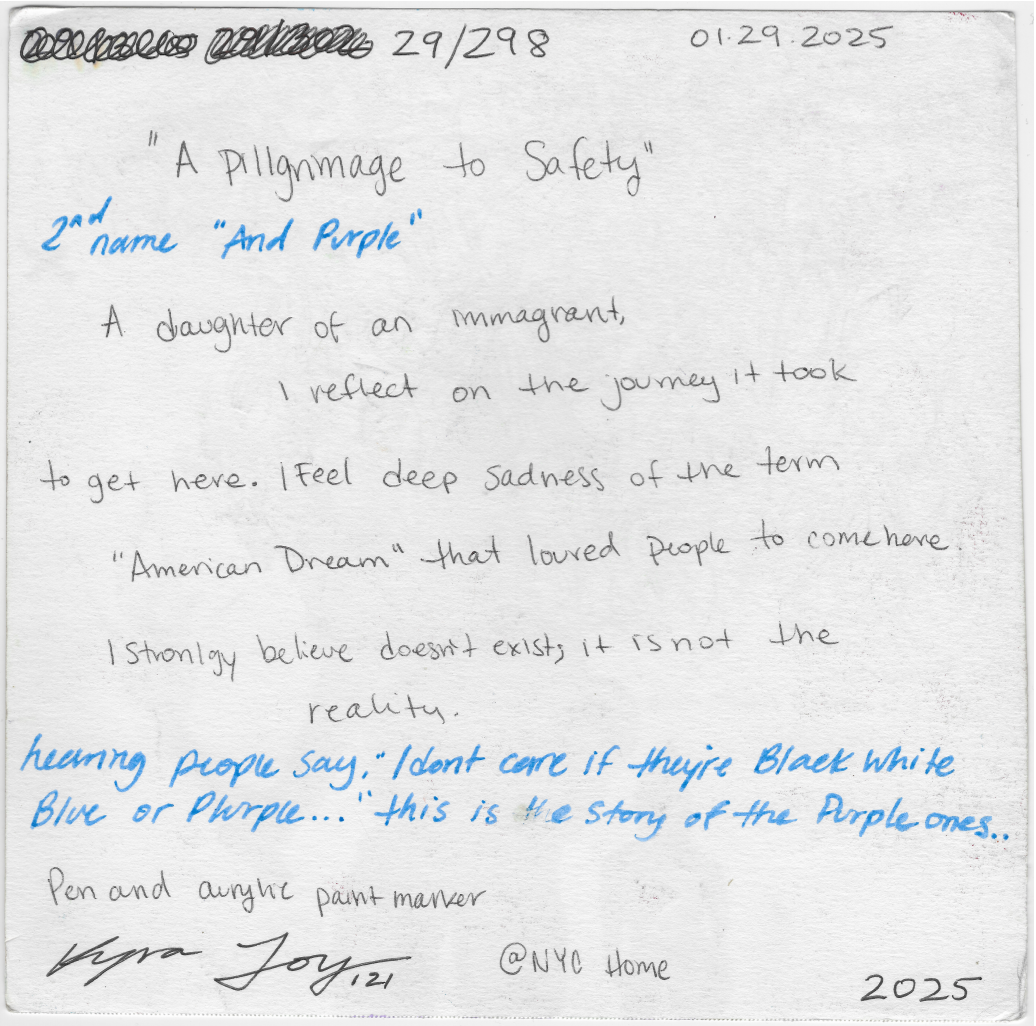 29/298 01.29.2025
"A Pillgrimage to Safety"
2nd name "And Purple"
A daughter of an immagrant,
I reflect on the journey it took
to get here. I Feel deep sadness of the term
"American Dream" that loured people to come here
I stronlgy believe doesn't exist; it is not the
reality.
hearing people say, "I dont care if they're Black White
Blue or Plurple..." this is the story of the Purple ones..
Pen and acrylic paint marker
Kyra Joy, 121 @NYC Home 2025